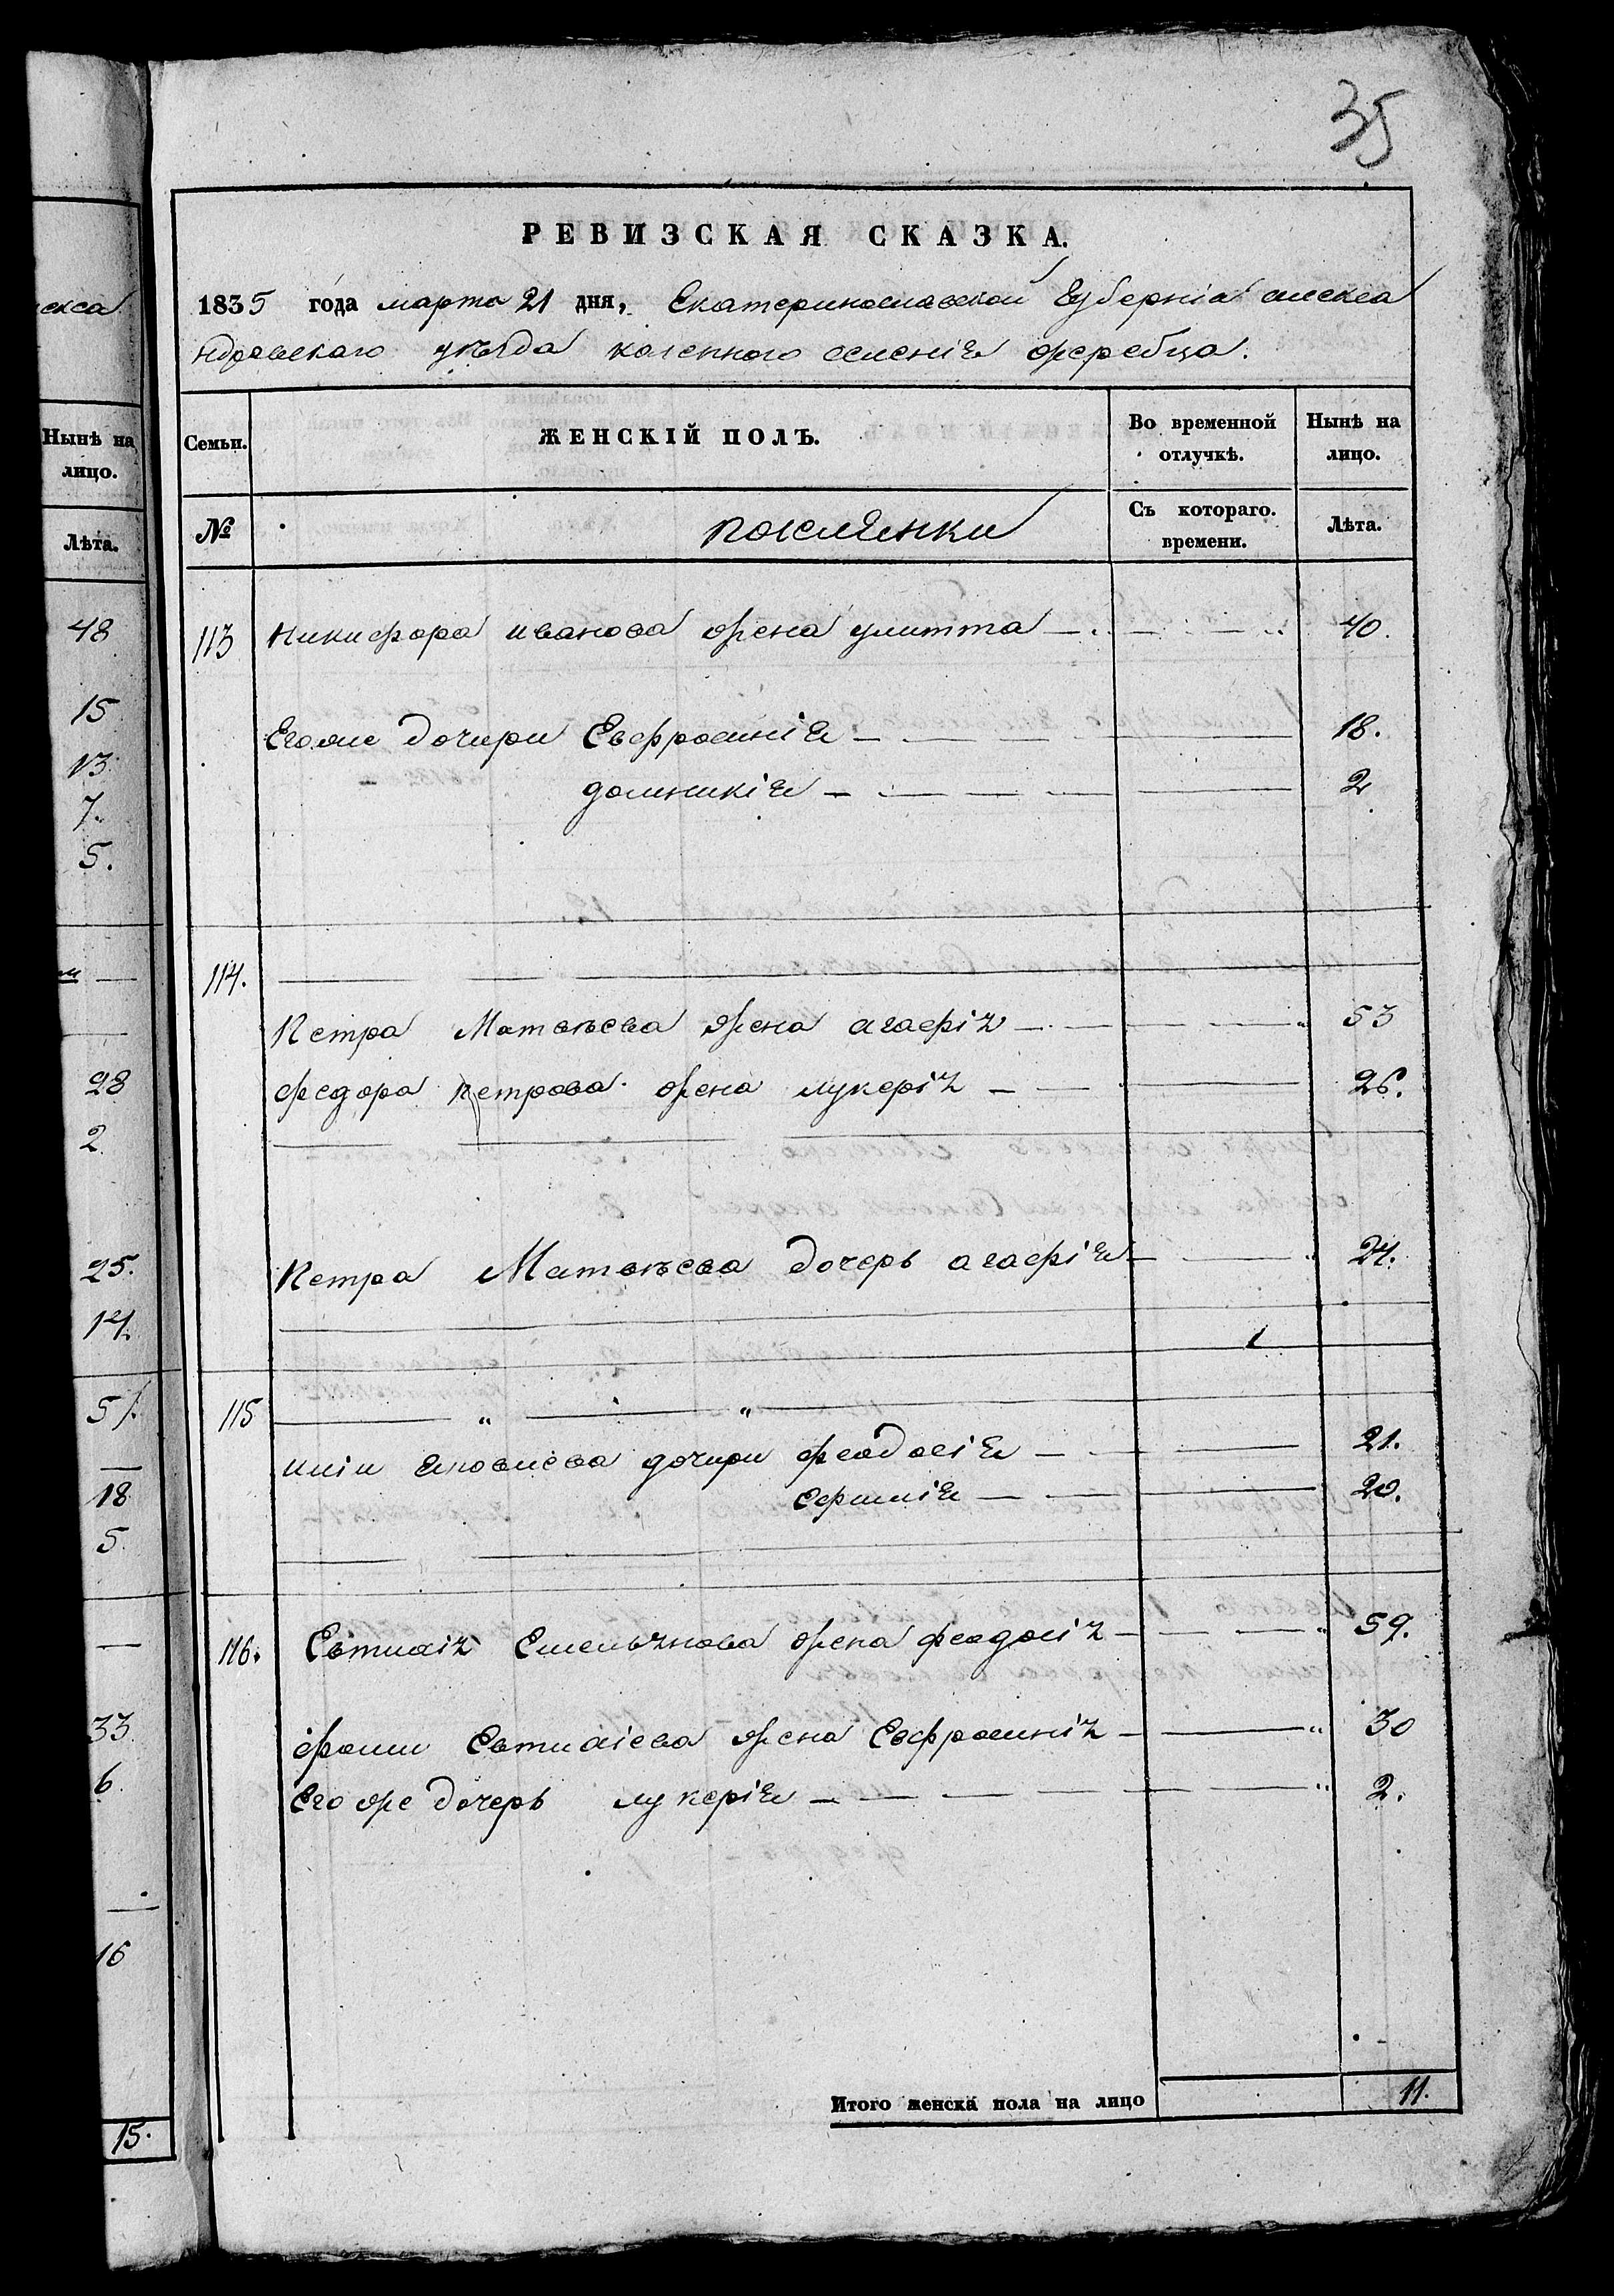 екса
Нынѣ на
лицо.
Лѣта.
48
15
13.
7.
5.
28
2
25.
14.
51.
18
5.
33
6.
16
15.
35
РЕВИЗСКАЯ СКАЗКА.
1835 года марта 21 дня, Екатеринославской Губерніи алекса
ндровскаго уѣзда казенного селенія жеребца.
Семьи. ЖЕНСКІЙ ПОЛЪ. Во временной отлучкѣ. Нынѣ на лицо.
№ поселянки Съ котораго. времени. Лѣта.
113 никифора иванова жена улитта 40.
Егоже дочири Евфросинія 18.
домникія 2
114.
Петра Матвѣева жена агафія 53
федора петрова жена лукерія 26.
Петра Матвѣева дочерь агафія 24.
115
иліи яковлева дочири феодосія 21.
Ефимія 20.
116. Евтихія Емельянова жена феодосія 59.
фомы Евтихіева жена Евфросинія 30
Его же дочерь лукерія 2.
Итого женска пола на лицо 11.